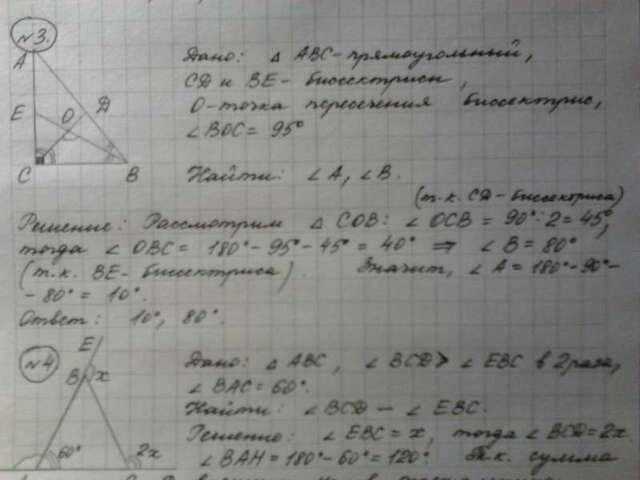 №3.
A
E
O
D
C
B
Дано: △ ABC - прямоугольный,
CD и BE - биссектрисы,
O - точка пересечения биссектрис,
∠BOC = 95°
Найти: ∠A, ∠B.
(т.к. CD - биссектриса)
Решение: Рассмотрим △ COB: ∠OCB = 90°:2 = 45°,
тогда ∠ OBC = 180° - 95° - 45° = 40° ⇒ ∠B = 80°
(т.к. BE - биссектриса). Значит, ∠A = 180° - 90° -
- 80° = 10°.
Ответ: 10°, 80°.
№4
E
B
x
60°
2x
Дано: △ ABC, ∠ BCD > ∠ EBC в 2 раза,
∠BAC = 60°.
Найти: ∠BCD - ∠EBC.
Решение: ∠EBC = x, тогда ∠BCD = 2x
∠BAH = 180° - 60° = 120°. Т.к. сумма